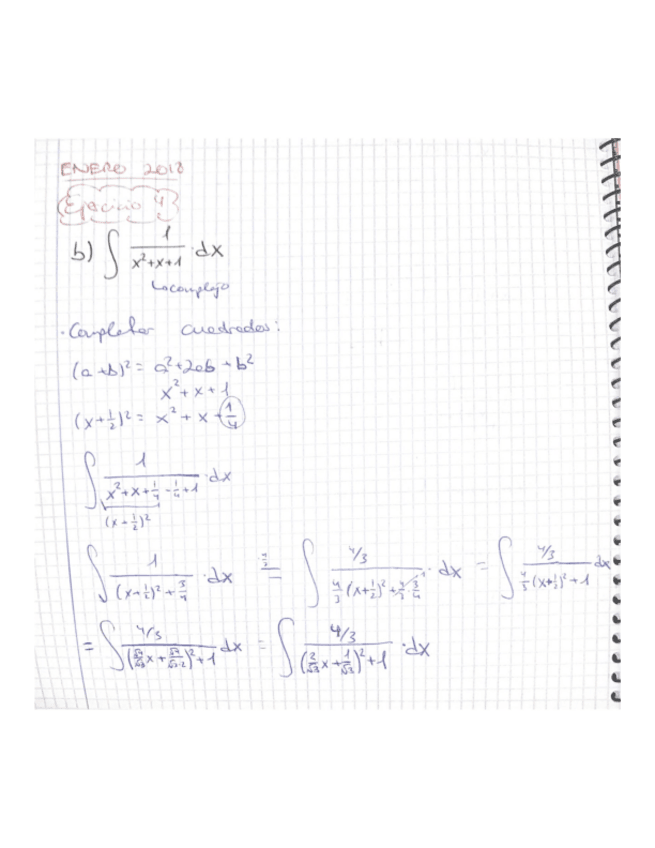 ENERO 2018
Ejercicio 4
b) ∫ 1/(x²+x+1) · dx
↳complejo
· Completar cuadrados:
(a+b)² = a²+2ab+b²
x²+x+1
(x+1/2)² = x²+x+1/4
∫ 1/(x²+x+1/4-1/4+1) · dx
(x+1/2)²
∫ 1/((x+1/2)²+3/4) · dx = ∫ (4/3)/(4/3(x+1/2)²+4/3·3/4) · dx = ∫ (4/3)/(4/3(x+1/2)²+1) dx
= ∫ (4/3)/((√4/√3 x+√4/(√3·2))²+1) dx = ∫ (4/3)/((2/√3 x+1/√3)²+1) · dx